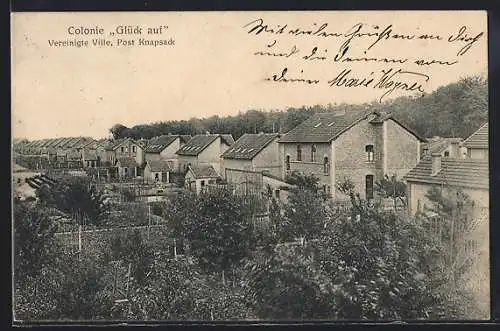 Colonie „Glück auf"
Vereinigte Ville, Post Knapsack
Mit vielen Grüßen an Dich
und die deinen von
deiner Marie Wagner